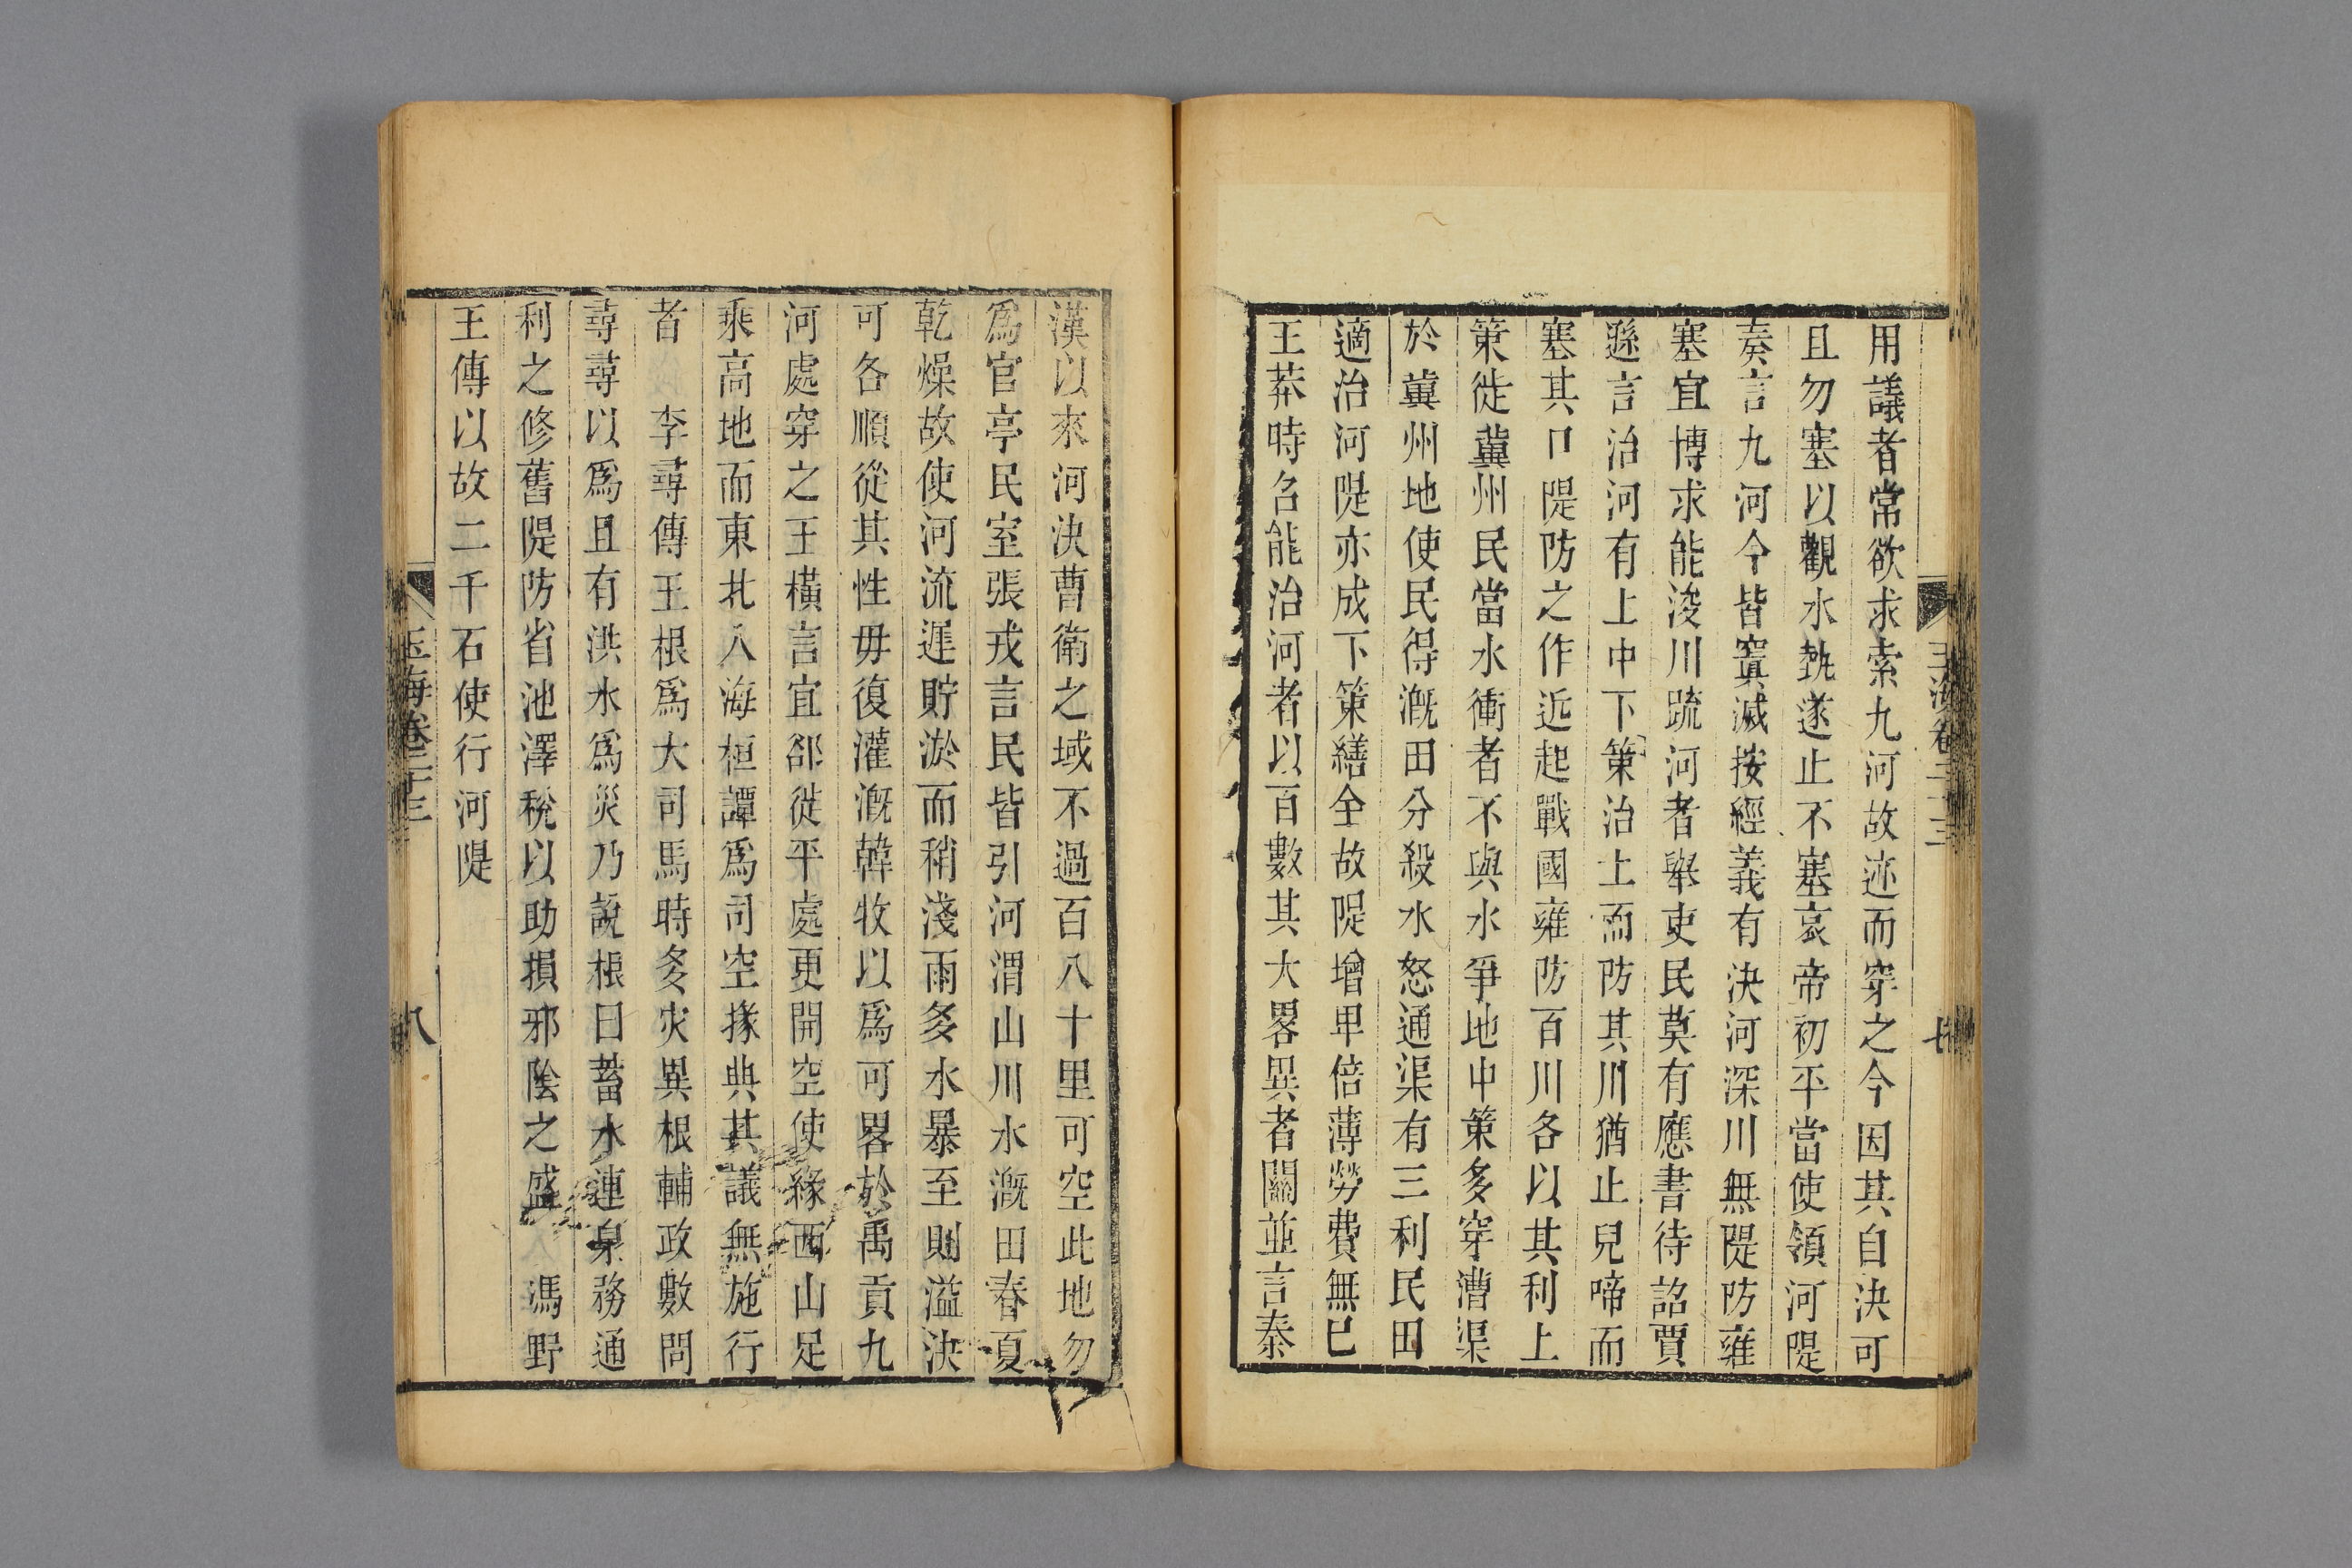 用議者常欲求索九河故迹而穿之今因其自決可
且勿塞以觀水埶遂止不塞哀帝初平當使領河隄
奏言九河今皆窴滅按經義有決河深川無隄防雍
塞宜博求能浚川疏河者舉吏民莫有應書待詔賈
遜言治河有上中下策治土而防其川猶止兒啼而
塞其口隄防之作近起戰國雍防百川各以其利上
策徙冀州民當水衝者不與水爭地中策多穿漕渠
於冀州地使民得漑田分殺水怒通渠有三利民田
適治河隄亦成下策繕全故隄增甲倍薄勞費無巳
王莽時名能治河者以百數其大畧異者關並言秦
玉海卷二十三
七
漢以來河決曹衛之域不過百八十里可空此地勿
爲官亭民室張戎言民皆引河渭山川水漑田春夏
乾燥故使河流遲貯淤而稍淺雨多水暴至則溢決
可各順從其性毋復灌漑韓牧以爲可畧於禹貢九
河處穿之王橫言宜郤徙平處更開空使緣西山足
乘高地而東北入海桓譚爲司空掾典其議無施行
者 李尋傳王根爲大司馬時多灾異根輔政數問
尋尋以爲且有洪水爲災乃說根曰蓄水連泉務通
利之修舊隄防省池澤稅以助損邪陰之盛 馮野
王傳以故二千石使行河隄
玉海卷二十三
八